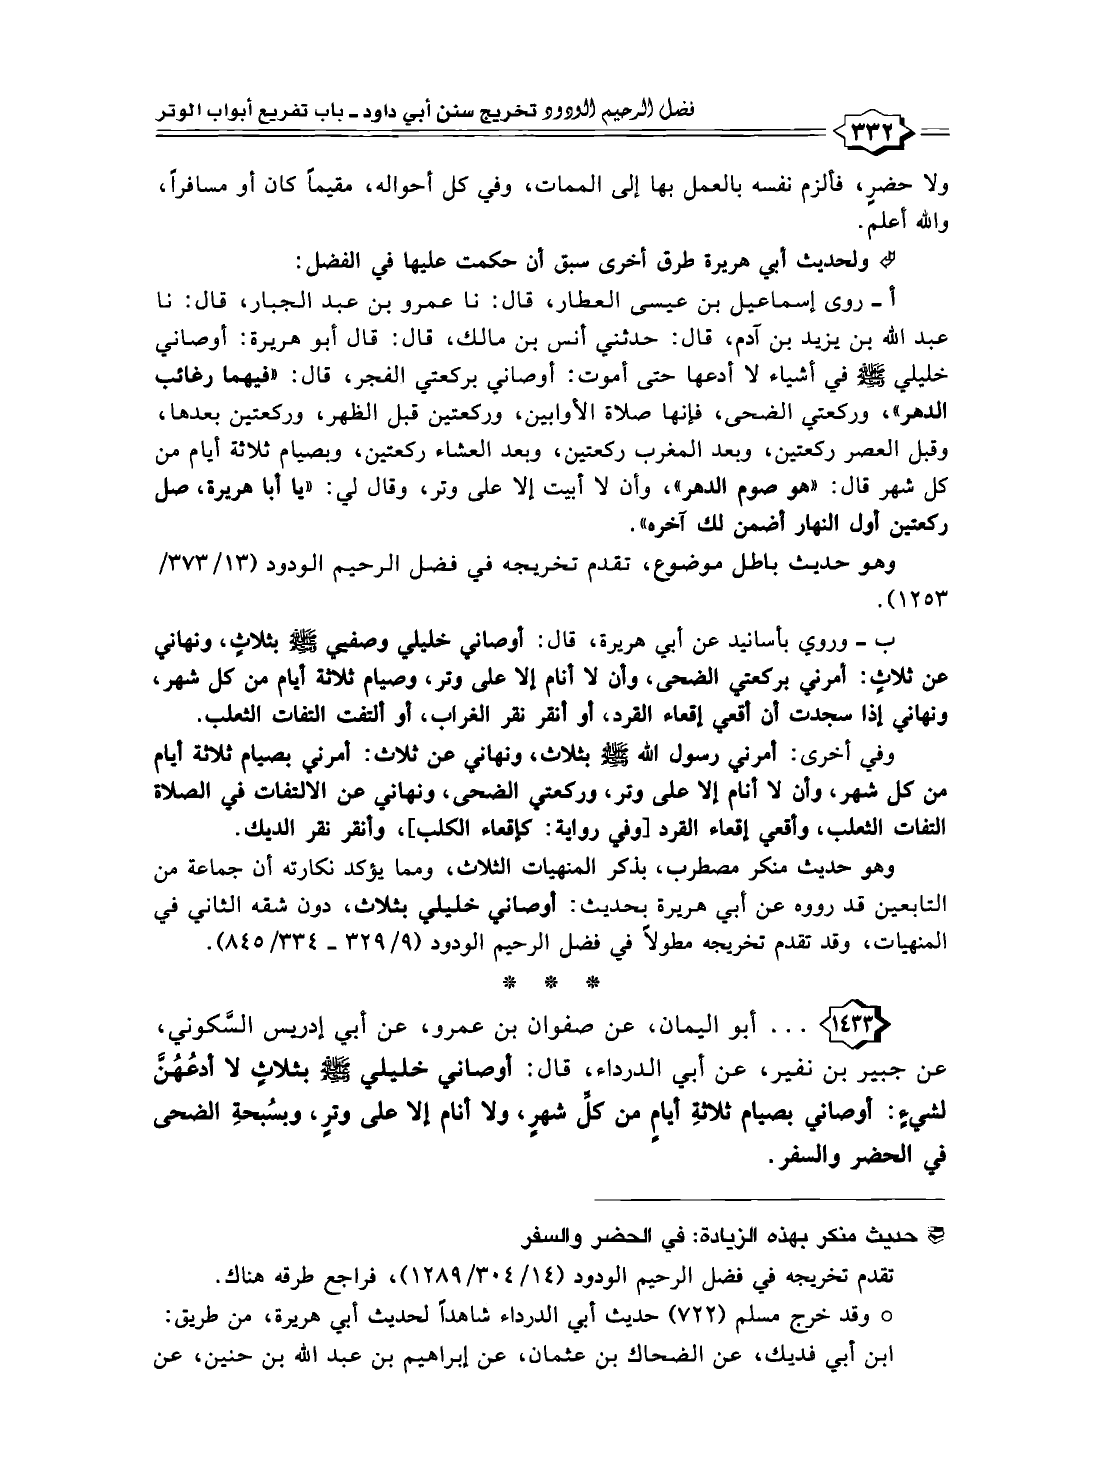 فضل الرحيم الودود تخريج سنن أبي داود ـ باب تفريع أبواب الوتر
٣٣٢
ولا حضرٍ، فألزم نفسه بالعمل بها إلى الممات، وفي كل أحواله، مقيماً كان أو مسافراً،
والله أعلم.
ولحديث أبي هريرة طرق أخرى سبق أن حكمت عليها في الفضل:
أ ـ روى إسماعيل بن عيسى العطار، قال: نا عمرو بن عبد الجبار، قال: نا
عبد الله بن يزيد بن آدم، قال: حدثني أنس بن مالك، قال: قال أبو هريرة: أوصاني
خليلي ﷺ في أشياء لا أدعها حتى أموت: أوصاني بركعتي الفجر، قال: «فيهما رغائب
الدهر»، وركعتي الضحى، فإنها صلاة الأوابين، وركعتين قبل الظهر، وركعتين بعدها،
وقبل العصر ركعتين، وبعد المغرب ركعتين، وبعد العشاء ركعتين، وبصيام ثلاثة أيام من
كل شهر قال: «هو صوم الدهر»، وأن لا أبيت إلا على وتر، وقال لي: «يا أبا هريرة، صل
ركعتين أول النهار أضمن لك آخره».
وهو حديث باطل موضوع، تقدم تخريجه في فضل الرحيم الودود (١٣/ ٣٧٣/
١٢٥٣).
ب ـ وروي بأسانيد عن أبي هريرة، قال: أوصاني خليلي وصفيي ﷺ بثلاثٍ، ونهاني
عن ثلاثٍ: أمرني بركعتي الضحى، وأن لا أنام إلا على وتر، وصيام ثلاثة أيام من كل شهر،
ونهاني إذا سجدت أن أقعي إقعاء القرد، أو أنقر نقر الغراب، أو ألتفت التفات الثعلب.
وفي أخرى: أمرني رسول الله ﷺ بثلاث، ونهاني عن ثلاث: أمرني بصيام ثلاثة أيام
من كل شهر، وأن لا أنام إلا على وتر، وركعتي الضحى، ونهاني عن الالتفات في الصلاة
التفات الثعلب، وأقعي إقعاء القرد [وفي رواية: كإقعاء الكلب]، وأنقر نقر الديك.
وهو حديث منكر مضطرب، بذكر المنهيات الثلاث، ومما يؤكد نكارته أن جماعة من
التابعين قد رووه عن أبي هريرة بحديث: أوصاني خليلي بثلاث، دون شقه الثاني في
المنهيات، وقد تقدم تخريجه مطولاً في فضل الرحيم الودود (٩/ ٣٢٩ ـ ٣٣٤/ ٨٤٥).
* * *
١٤٣٣ ... أبو اليمان، عن صفوان بن عمرو، عن أبي إدريس السَّكوني،
عن جبير بن نفير، عن أبي الدرداء، قال: أوصاني خليلي ﷺ بثلاثٍ لا أدعُهُنَّ
لشيءٍ: أوصاني بصيام ثلاثةِ أيامٍ من كلِّ شهرٍ، ولا أنام إلا على وترٍ، وبسُبحةِ الضحى
في الحضر والسفر.
حديث منكر بهذه الزيادة: في الحضر والسفر
تقدم تخريجه في فضل الرحيم الودود (١٤/ ٣٠٤/ ١٢٨٩)، فراجع طرقه هناك.
○ وقد خرج مسلم (٧٢٢) حديث أبي الدرداء شاهداً لحديث أبي هريرة، من طريق:
ابن أبي فديك، عن الضحاك بن عثمان، عن إبراهيم بن عبد الله بن حنين، عن